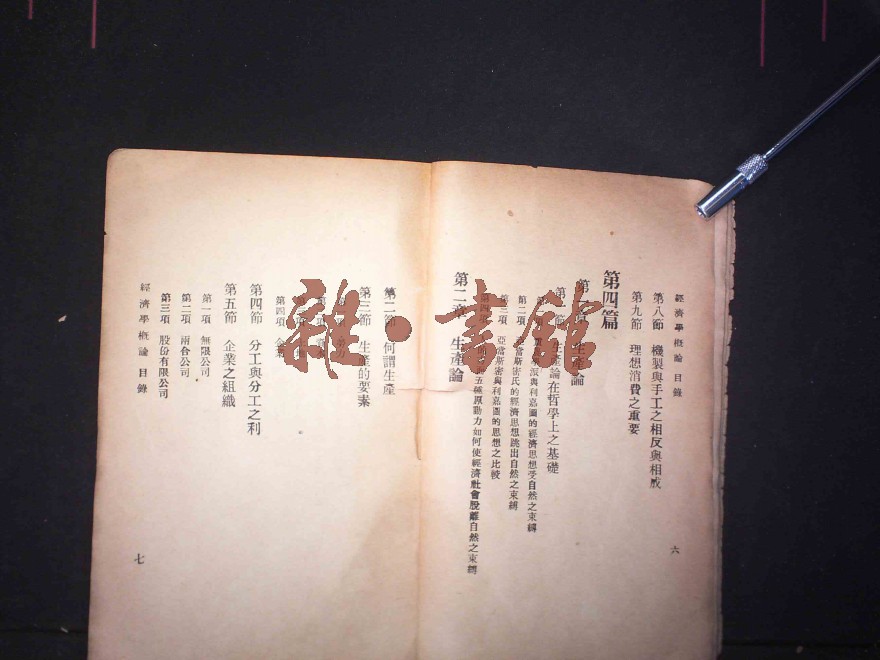 經濟學概論 目錄
第八節 機製與手工之相反與相成
第九節 理想消費之重要
第四篇
第 生產論
第 節 生產論在哲學上之基礎
派與利嘉圖的經濟思想受自然之束縛
第二項 亞當斯密氏的經濟思想跳出自然之束縛
第三項 亞當斯密與利嘉圖的思想之比較
第四項 五種原動力如何使經濟社會脫離自然之束縛
六
第二章 生產論
第二節 何謂生產
第三節 生產的要素
第四項 企業
第四節 分工與分工之利
第五節 企業之組織
第一項 無限公司
第二項 兩合公司
第三項 股份有限公司
經濟學概論 目錄
七
雜·書館